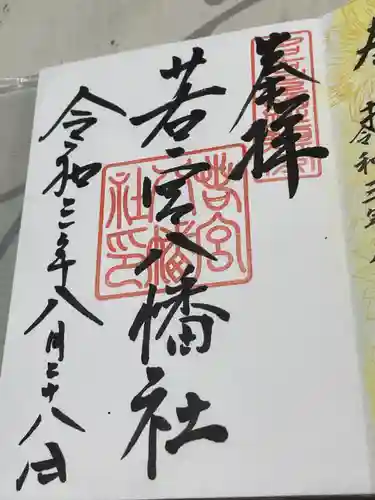 奉拝
若宮八幡社
令和三年八月二十八日
若宮
八幡
社印
令和三年